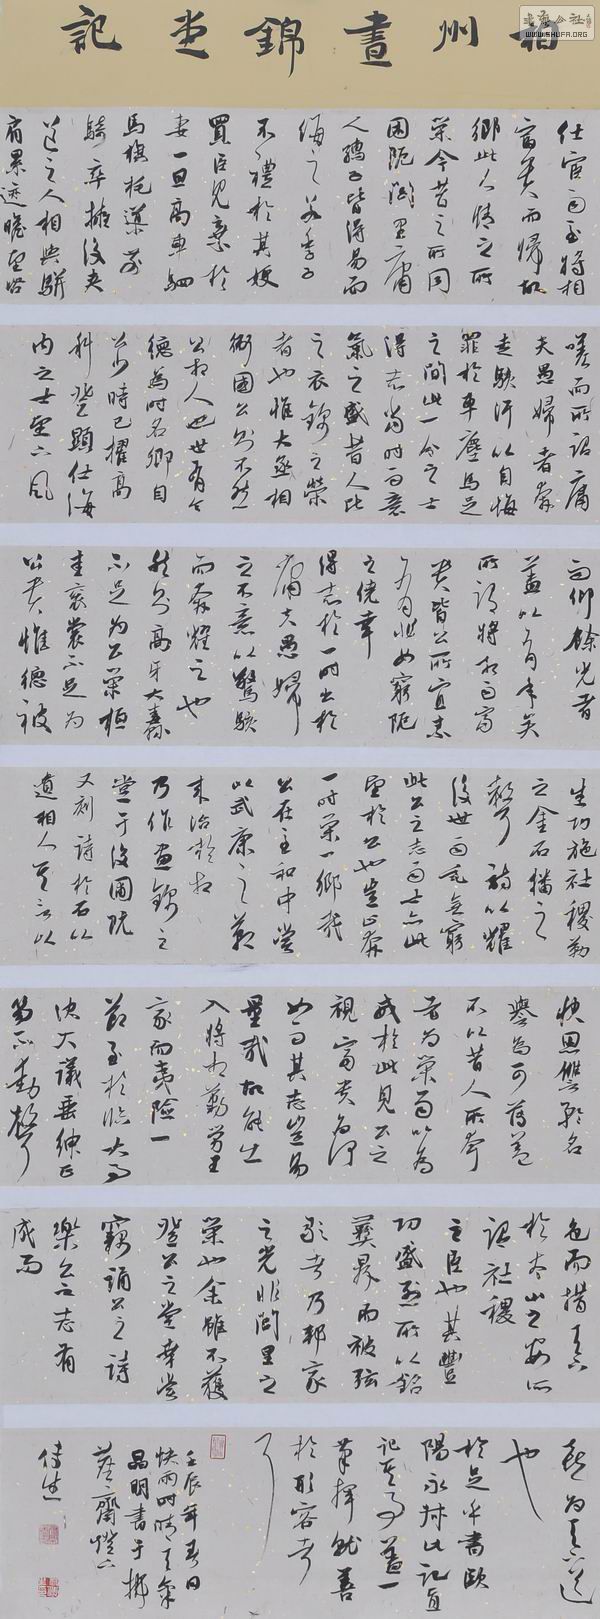 相州晝錦堂記
仕宦而至將相
富貴而歸故
鄉此人情之所
榮今昔之所同
困阨閭里庸
人孺子皆得易而
侮之若季子
不禮於其嫂
買臣見棄於
妻一旦高車駟
馬旗旄導前
騎卒擁後夾
道之人相與駢
肩累迹瞻望咨
嗟而所謂庸
夫愚婦者奔
走駭汗以自悔
罪於車塵馬足
之間此一介之士
得志當時而意
氣之盛昔人比
之衣錦之榮
者也惟大丞相
衛國公則不然
公相人也世有令
德為時名卿自
公少時已擢高
科登顯仕海
內之士望下風
而仰餘光者
蓋以有年矣
所謂將相而富
貴皆公所宜素
有非如窮阨
之僥幸
得志於一時出於
庸夫愚婦
之不意以驚駭
而夸耀之也
然則高牙大纛
不足為公榮桓
圭袞裳不足為
公貴惟德被
生功施社稷勒
之金石播之
聲詩以耀
後世而垂無窮
此公之志而士亦此
望於公也豈止夸
一時榮一鄉哉
公在至和中嘗
以武康之節
來治於相
乃作晝錦之
堂于後圃既
又刻詩於石以
遺相人其言以
快恩讎矜名
譽為可薄蓋
不以昔人所夸
者為榮而以為
戒於此見公之
視富貴為何
如而其志豈易
量哉故能出
入將相勤勞王
家而夷險一
節至於臨大事
決大議垂紳正
笏不動聲
色而措天下
於泰山之安可
謂社稷
之臣也其豐
功盛烈所以銘
彝鼎而被弦
歌者乃邦家
之光非閭里之
榮也余雖不獲
登公之堂幸嘗
竊誦公之詩
樂公之志有
成而
喜為天下道
也
於是乎書歐
陽永叔此記直
記其事蓋一
筆揮就善
於形容者
壬辰年春日
快雨時晴天氣
晶明書于
齋燈下
WWW.SHUFA.ORG